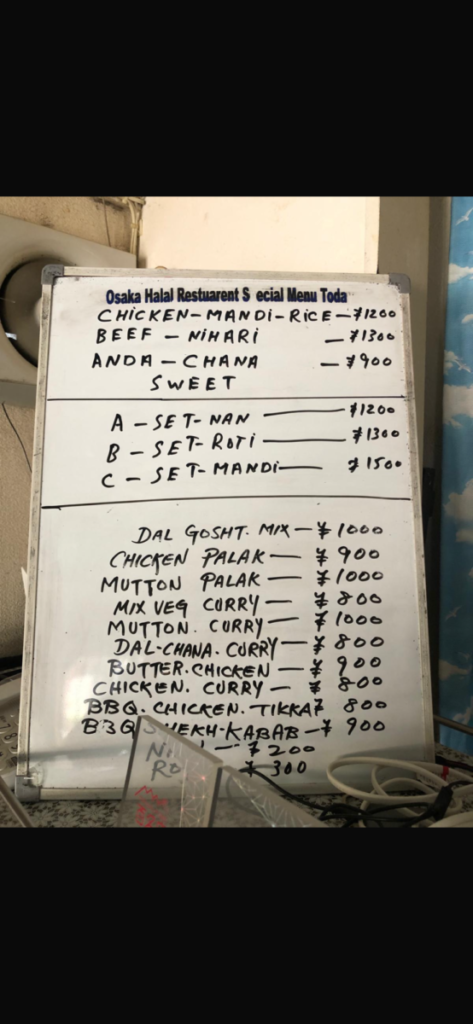 Osaka Halal Restuarent S ecial Menu Toda
CHICKEN-MANDI-RICE-¥1200
BEEF - NIHARI - ¥1300
ANDA - CHANA - ¥900
SWEET
A - SET-NAN - ¥1200
B - SET-ROTI - ¥1300
C - SET-MANDI - ¥1500
DAL GOSHT. MIX - ¥1000
CHICKEN PALAK - ¥900
MUTTON PALAK - ¥1000
MIX VEG CURRY - ¥800
MUTTON. CURRY - ¥1000
DAL-CHANA. CURRY - ¥800
BUTTER. CHICKEN - ¥900
CHICKEN. CURRY - ¥800
BBQ. CHICKEN. TIKKA ¥ 800
BBQ SHEKH-KABAB - ¥900
- ¥200
¥300